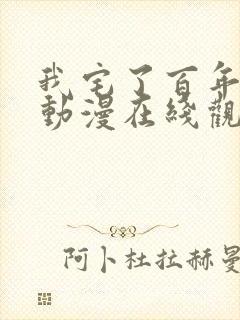 我宅了百年
動漫在綫觀
阿卜杜拉赫曼